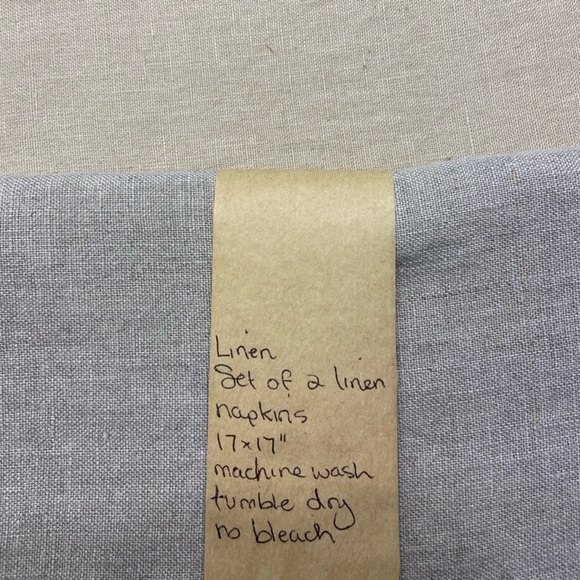 Linen
Set of 2 linen
napkins
17x17"
machine wash
tumble dry
no bleach